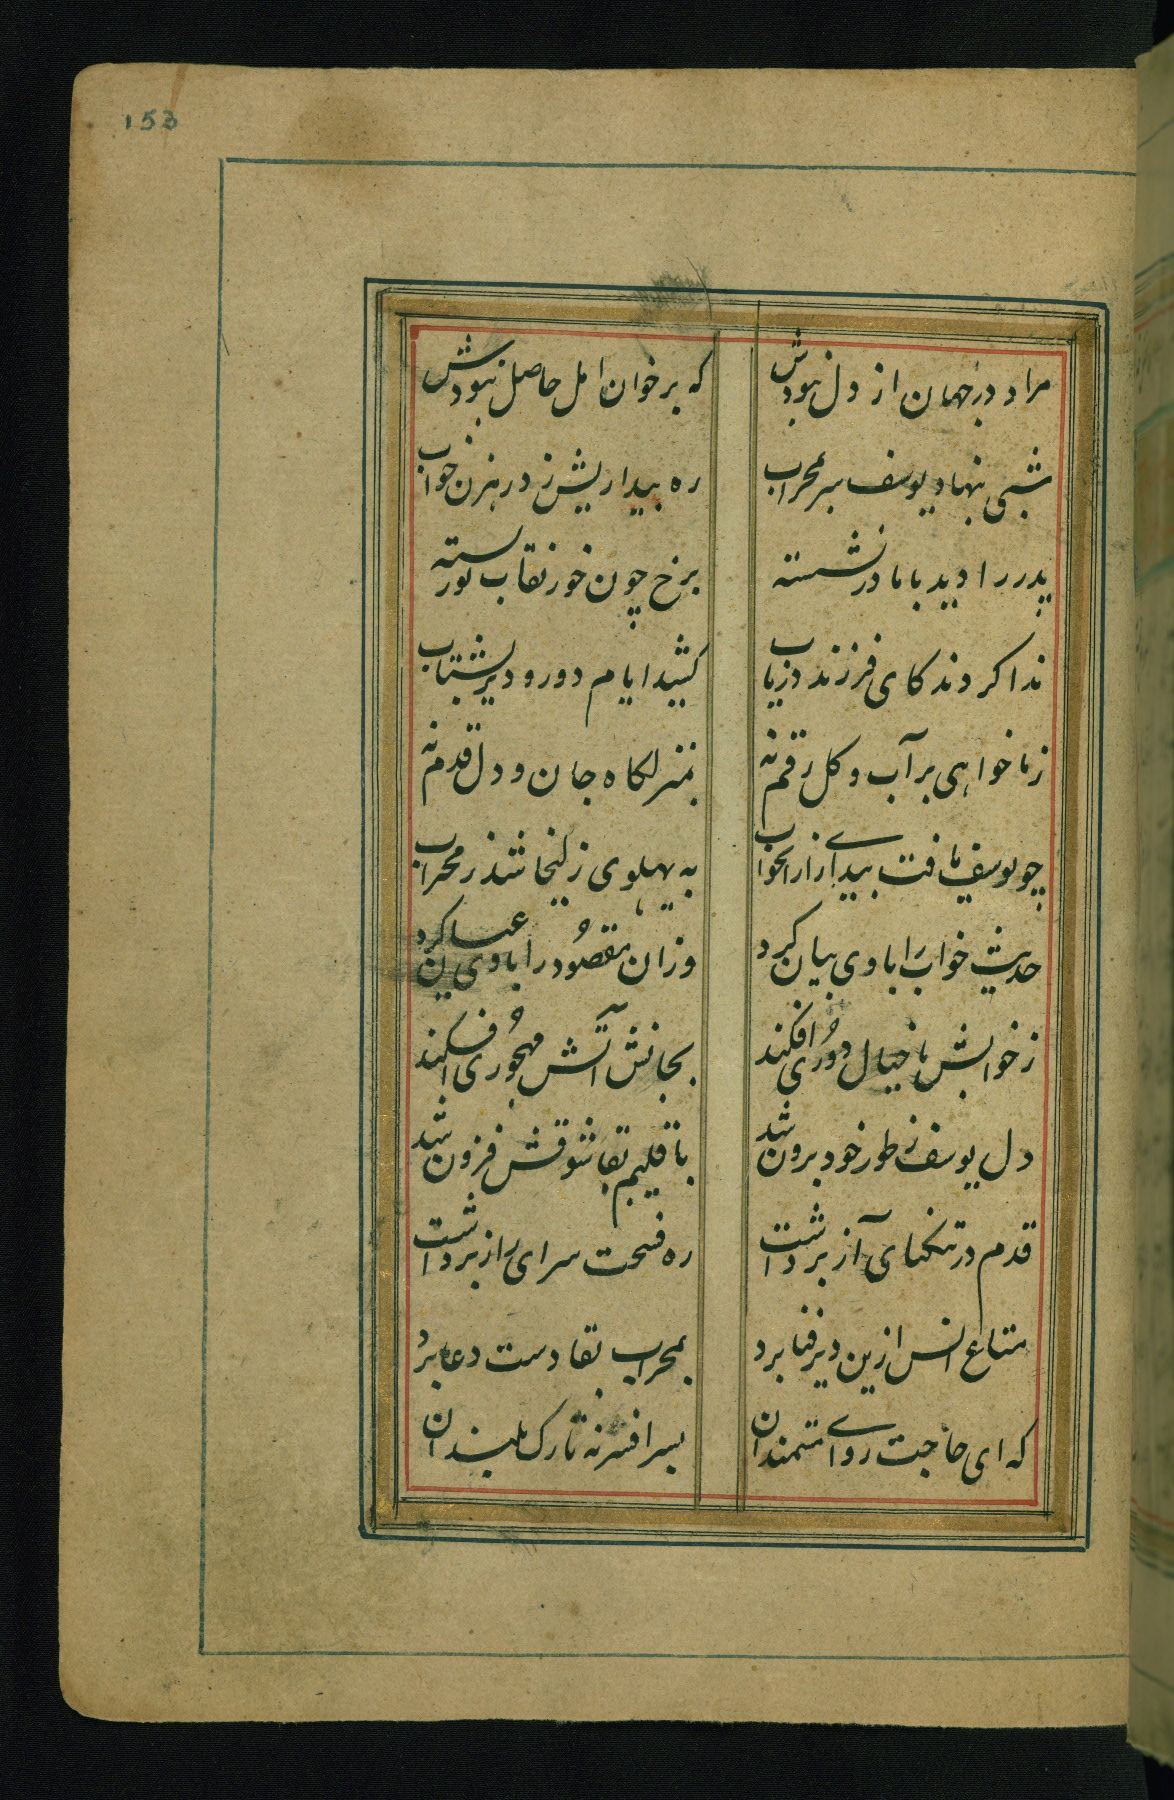 153
مراد در جهان از دل نبودش که بر خوان امل حاصل نبودش
شبی بنهاد یوسف سر بمحراب ره بیداریش زد رهزن خواب
پدر را دید با مادر نشسته برخ چون خور نقاب نور بسته
ندا کردند کای فرزند دریاب کشید ایام دوری دیر بشتاب
ز ما خواهی بر آب و کل رقم نه بمنزلکاه جان و دل قدم نه
چو یوسف یافت بیداری ازان خواب به پهلوی زلیخا شد ز محراب
حدیث خواب را با وی بیان کرد وزان مقصود را با وی عیان کرد
ز خوابش با خیال دوری افکند بجانش آتش مهجوری افکند
دل یوسف ز طور خود برون شد باقلیم بقا شوقش فزون شد
قدم در تنکنای آز برداشت ره فسحت سرای راز برداشت
متاع انس ازین دیر فنا برد بمحراب بقا دست دعا برد
که ای حاجت روای مستمندان بسر افسر نه تارک بلندان